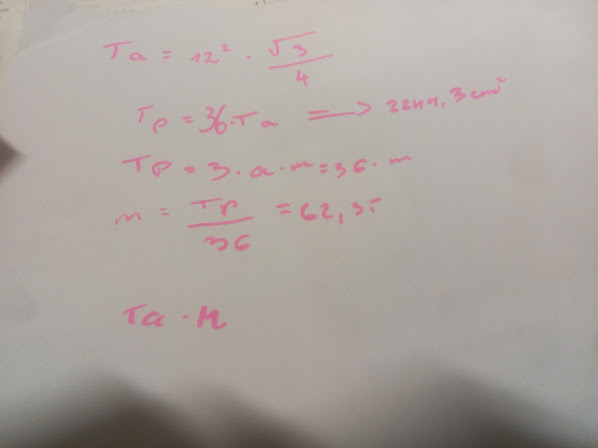 Ta = 12² · √3/4
Tp = 36·Ta ⟹ 2244,3 cm²
Tp = 3·a·m = 36·m
m = Tp/36 = 62,35
Ta · M